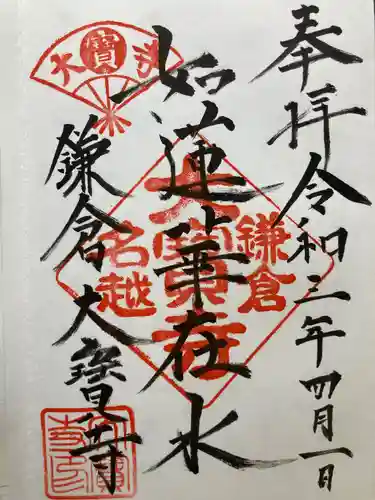 奉拝
令和三年四月一日
如蓮華在水
鎌倉大寶寺
鎌倉
大寶寺
名越
寶